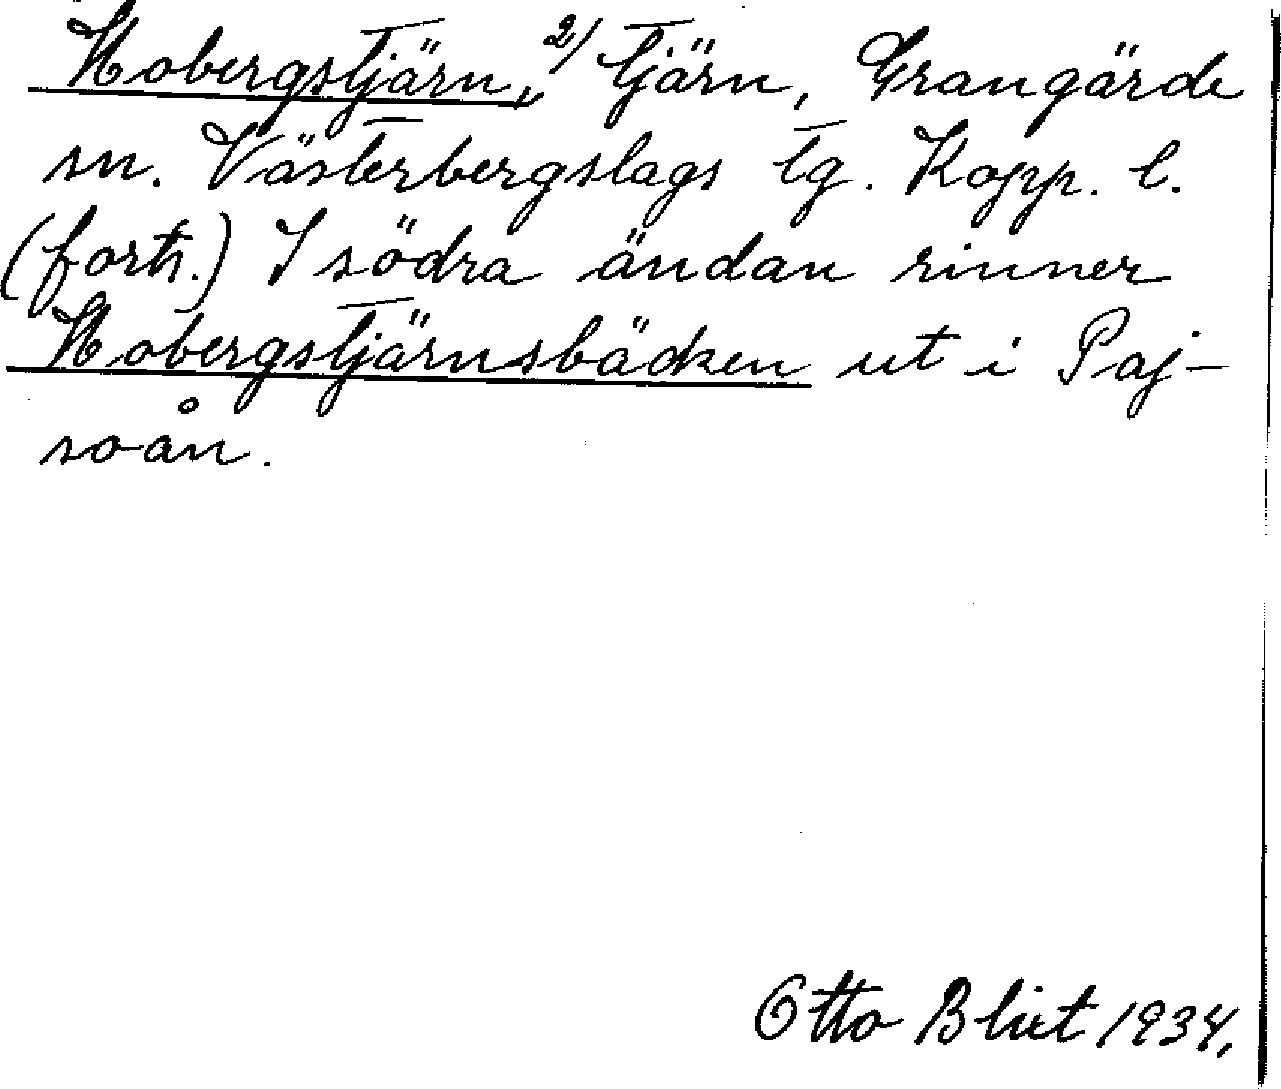 Hobergstjärn,, 2) tjärn, Grangärde
sn. Västerbergslags tg. Kopp. l.
(forts.) I södra ändan rinner
Hobergstjärnsbäcken ut i Paj-
soån.
Otto Blixt 1934.